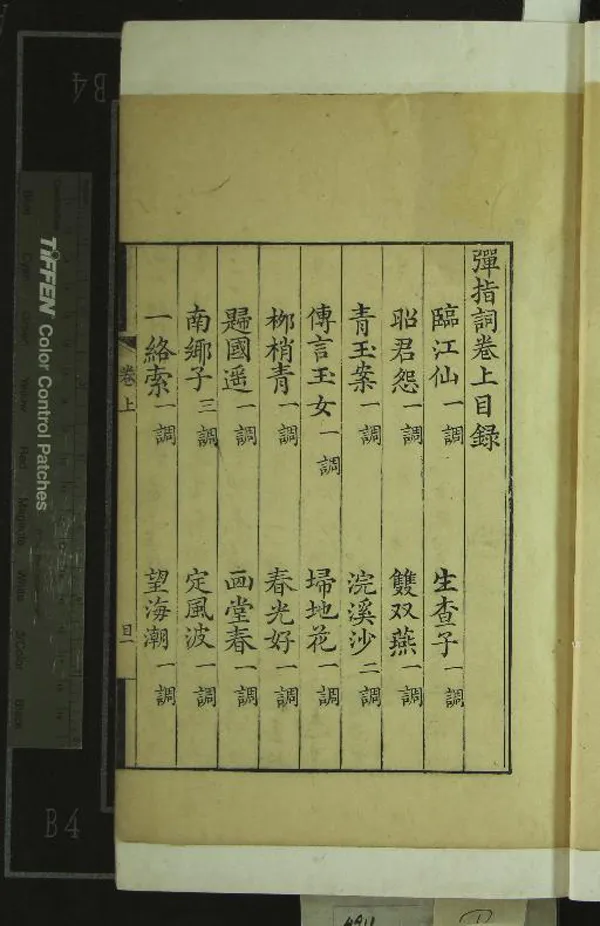 彈指詞卷上目録
臨江仙一調 生查子一調
昭君怨一調 雙双燕一調
青玉案一調 浣溪沙二調
傳言玉女一調 埽地花一調
栁梢青一調 春光好一調
歸國遥一調 画堂春一調
南鄉子三調 定風波一調
一絡索一調 望海潮一調
卷上
目一
TIFFEN Color Control Patches
B4
B4